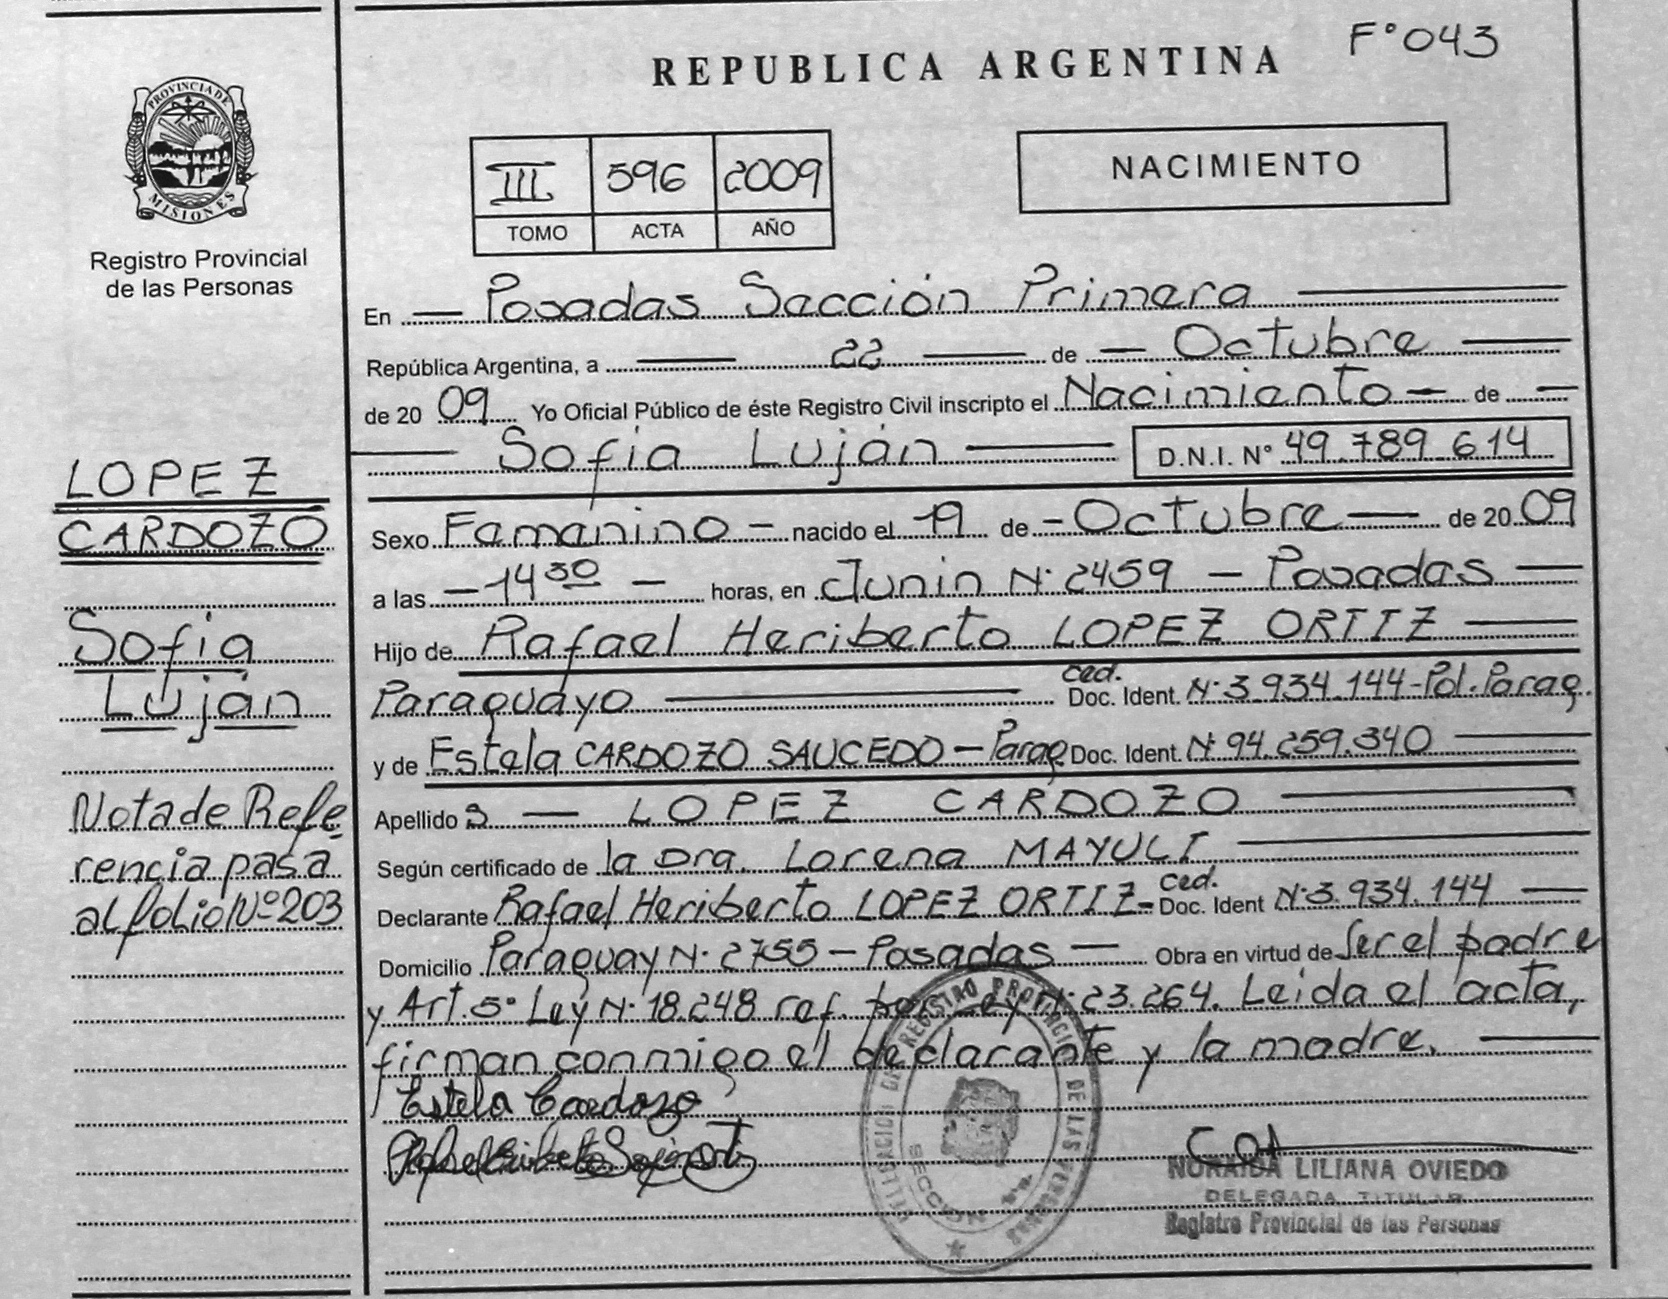 F° 043
REPUBLICA ARGENTINA
PROVINCIA DE
MISIONES
Registro Provincial
de las Personas
III 596 2009
TOMO ACTA AÑO
NACIMIENTO
En — Posadas Sección Primera —
República Argentina, a — 22 — de — Octubre —
de 20 09 Yo Oficial Público de éste Registro Civil inscripto el Nacimiento — de —
— Sofía Luján — D.N.I. N° 49.789.614
Sexo Femenino — nacido el 19 de — Octubre — de 20 09
a las — 14 30 — horas, en Junin N· 2459 — Posadas —
Hijo de Rafael Heriberto LOPEZ ORTIZ —
Paraguayo — ced. Doc. Ident. N· 3.934.144-Pol.Parag.
y de Estela CARDOZO SAUCEDO — Parag Doc. Ident. N· 94.259.340 —
Apellido s — LOPEZ CARDOZO —
Según certificado de la Dra. Lorena MAYULI. —
Declarante Rafael Heriberto LOPEZ ORTIZ- ced. Doc. Ident N·3.934.144 —
Domicilio Paraguay N· 2755 — Posadas — Obra en virtud de Ser el padre
y Art. 5° Ley N· 18.248 ref. por Ley N· 23.264. Leida el acta,
firman conmigo el declarante y la madre. —
Estela Cardozo
LOPEZ
CARDOZO
Sofía
Luján
Nota de Refe
rencia pasa
al folio Nº 203
DELEGACION DEL REGISTRO PROVINCIAL DE LAS PERSONAS
SECCION
NORAIDA LILIANA OVIEDO
DELEGADA TITULAR
Registro Provincial de las Personas